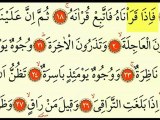 فَإِذَا قَرَأْنَاهُ فَاتَّبِعْ قُرْآنَهُ ١٨ ثُمَّ إِنَّ عَلَيْنَا
الْعَاجِلَةَ ٢٠ وَتَذَرُونَ الْآخِرَةَ ٢١ وُجُوهٌ يَوْ
نَاظِرَةٌ ٢٣ وَوُجُوهٌ يَوْمَئِذٍ بَاسِرَةٌ ٢٤ تَظُنُّ أَ
إِذَا بَلَغَتِ التَّرَاقِيَ ٢٦ وَقِيلَ مَنْ رَاقٍ ٢٧ وَ